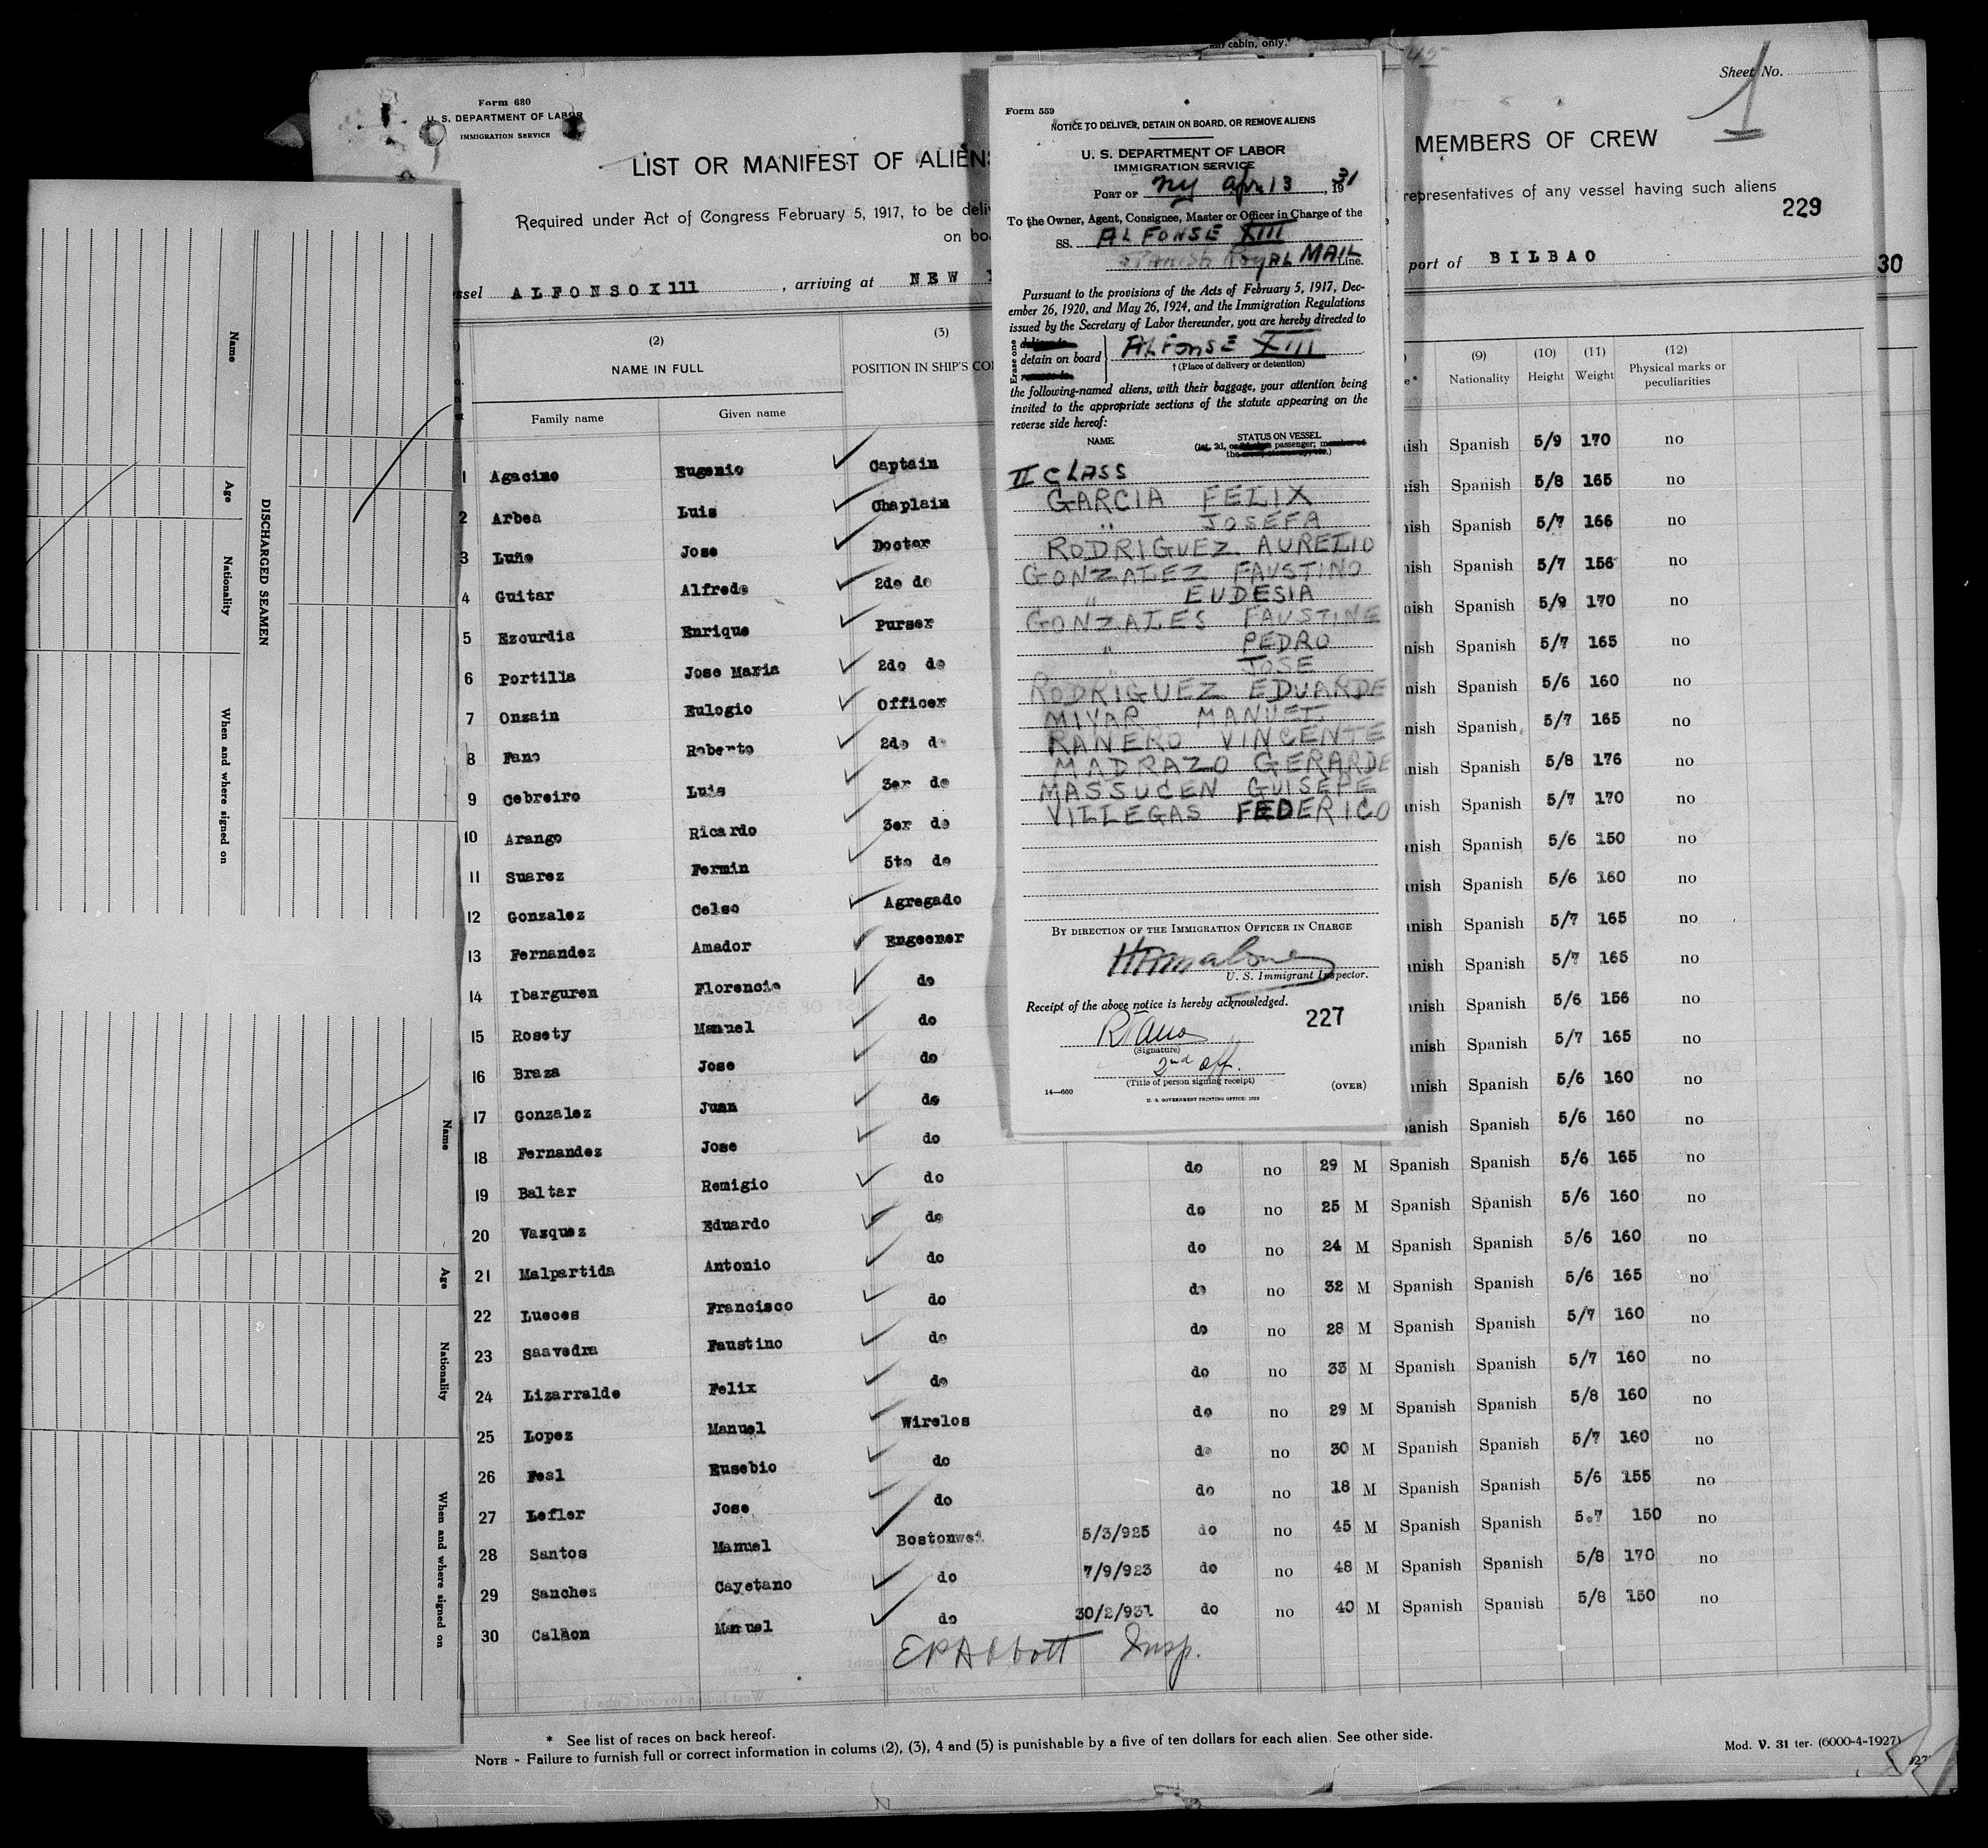 an cabin, only.
Sheet No.
1
Form 680
U. S. DEPARTMENT OF LABOR
IMMIGRATION SERVICE
LIST OR MANIFEST OF ALIENS
MEMBERS OF CREW
Required under Act of Congress February 5, 1917, to be deli
representatives of any vessel having such aliens
on boa
229
30
ssel ALFONSO X111 , arriving at NEW
port of BILBAO
(2)
NAME IN FULL
Family name
Given name
(3)
POSITION IN SHIP'S CO
(9)
Nationality
(10)
Height
(11)
Weight
(12)
Physical marks or
peculiarities
1 Agacino Eugenio Captain nish Spanish 5/9 170 no
2 Arbea Luis Chaplain nish Spanish 5/8 165 no
3 Luño Jose Doctor nish Spanish 5/7 166 no
4 Guitar Alfredo 2do do nish Spanish 5/7 156 no
5 Ezcurdia Enrique Purser nish Spanish 5/9 170 no
6 Portilla Jose Maria 2do do nish Spanish 5/7 165 no
7 Onzain Eulogio Officer nish Spanish 5/6 160 no
8 Fano Roberto 2do do nish Spanish 5/7 165 no
9 Cebreiro Luis 3er do nish Spanish 5/8 176 no
10 Arango Ricardo 3er do nish Spanish 5/7 170 no
11 Suarez Fermin 5to do nish Spanish 5/6 150 no
12 Gonzalez Celso Agregado nish Spanish 5/6 160 no
13 Fernandez Amador Engeener nish Spanish 5/7 165 no
14 Ibarguren Florencio do nish Spanish 5/7 165 no
15 Rosety Manuel do nish Spanish 5/6 156 no
16 Braza Jose do nish Spanish 5/7 165 no
17 Gonzalez Juan do nish Spanish 5/6 160 no
18 Fernandez Jose do panish Spanish 5/6 160 no
19 Baltar Remigio do do no 29 M Spanish Spanish 5/6 165 no
20 Vazquez Eduardo do do no 25 M Spanish Spanish 5/6 160 no
21 Malpartida Antonio do do no 24 M Spanish Spanish 5/6 160 no
22 Lueces Francisco do do no 32 M Spanish Spanish 5/6 165 no
23 Saavedra Faustino do do no 28 M Spanish Spanish 5/7 160 no
24 Lizarralde Felix do do no 33 M Spanish Spanish 5/7 160 no
25 Lopez Manuel Wirelos do no 29 M Spanish Spanish 5/8 160 no
26 Feal Eusebio do do no 30 M Spanish Spanish 5/7 160 no
27 Lefler Jose do do no 18 M Spanish Spanish 5/6 155 no
28 Santos Manuel Bostonwei 5/3/925 do no 45 M Spanish Spanish 5.7 150 no
29 Sanchez Cayetano do 7/9/923 do no 48 M Spanish Spanish 5/8 170 no
30 Calñon Manuel do 30/2/931 do no 40 M Spanish Spanish 5/8 150 no
E P Abbott Insp.
* See list of races on back hereof.
NOTE - Failure to furnish full or correct information in colums (2), (3), 4 and (5) is punishable by a five of ten dollars for each alien. See other side.
Mod. V. 31 ter. (6000-4-1927)
927
Form 559
NOTICE TO DELIVER, DETAIN ON BOARD, OR REMOVE ALIENS
U. S. DEPARTMENT OF LABOR
IMMIGRATION SERVICE
PORT OF NY Apr 13, 1931
To the Owner, Agent, Consignee, Master or Officer in Charge of the
SS. ALFONSE XIII
SPANISH ROYAL MAIL Line.
Pursuant to the provisions of the Acts of February 5, 1917, Dec-
ember 26, 1920, and May 26, 1924, and the Immigration Regulations
issued by the Secretary of Labor thereunder, you are hereby directed to
Erase one
detain on board
ALFONSE XIII
† (Place of delivery or detention)
the following-named aliens, with their baggage, your attention being
invited to the appropriate sections of the statute appearing on the
reverse side hereof:
NAME
STATUS ON VESSEL
(1st, 2d, passenger; member of
the
II CLASS
GARCIA FELIX
" JOSEFA
RODRIGUEZ AURELIO
GONZALEZ FAUSTINO
" EUDESIA
GONZALES FAUSTINE
" PEDRO
JOSE
RODRIGUEZ EDUARDE
MIYAR MANUEL
RANERO VINCENTE
MADRAZO GERARDE
MASSUCEN GUISEFE
VILLEGAS FEDERICO
BY DIRECTION OF THE IMMIGRATION OFFICER IN CHARGE
U. S. Immigrant Inspector.
Receipt of the above notice is hereby acknowledged.
227
R Fano
(Signature)
2nd off.
(Title of person signing receipt)
(OVER)
14—660
U. S. GOVERNMENT PRINTING OFFICE: 1929
DISCHARGED SEAMEN
Name
Age
Nationality
When and where signed on
Name
Age
Nationality
When and where signed on